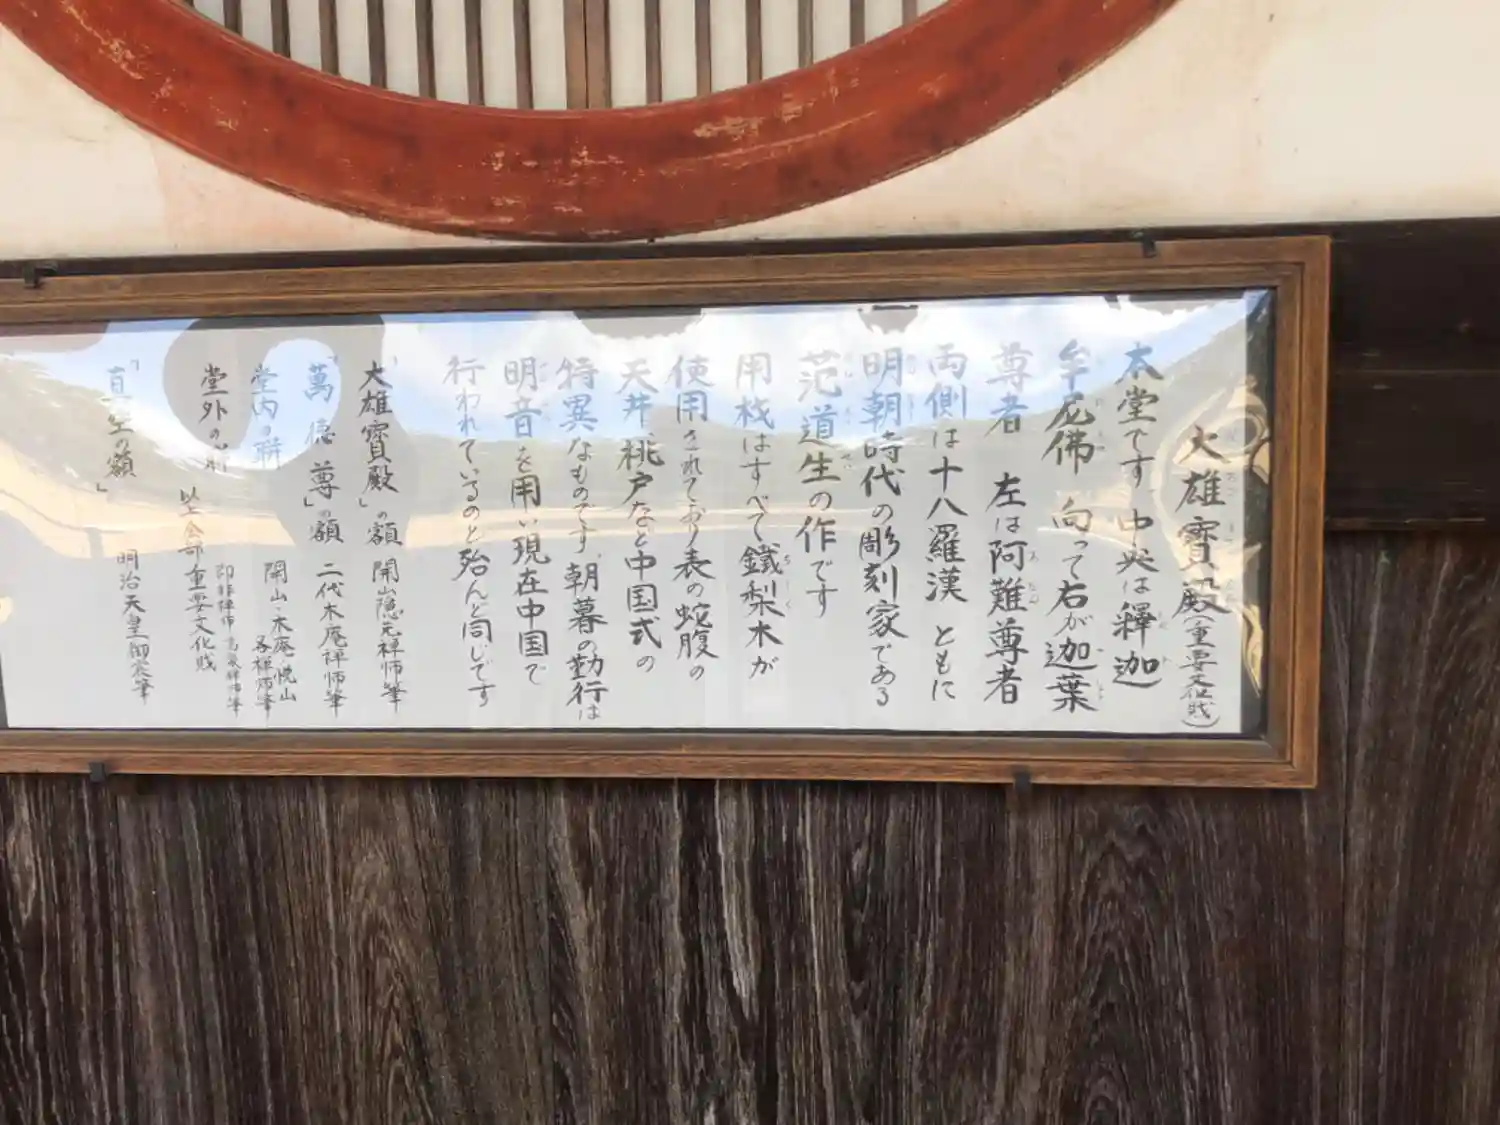 大雄寶殿(重要文化財)
本堂です 中央は釋迦
牟尼佛 向って右が迦葉
尊者 左は阿難尊者
両側は十八羅漢 ともに
明朝時代の彫刻家である
范道生の作です
用材はすべて鐵梨木が
使用されており表の蛇腹の
天井、桃戸など中国式の
特異なものです 朝暮の勤行は
明音を用い現在中国で
行われているのと殆んど同じです
「大雄寶殿」の額 開山隠元禅師筆
「萬徳尊」の額 二代木庵禅師筆
堂内の聯 開山・木庵・悦山各禅師筆
堂外の聯
以上全部重要文化財
「真空の額」 明治天皇御宸筆